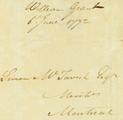 William Grant
6 June 1792
Simon McTavish Esqr
Montreal